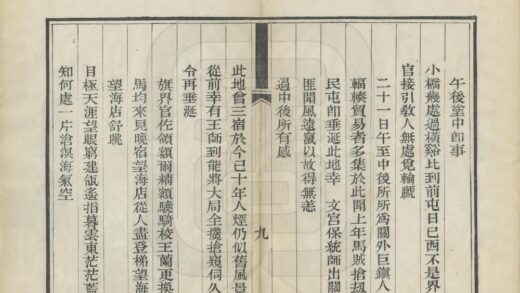 午後途中卽事
小橋幾處過橫谿比到前屯日已西不是界
官接引敎人無處覓輪蹏
二十一日午至中後所所爲關外巨鎭人
輻輳貿易者多集於此聞上年馬賊搶刼
民屯卽垂涎此地幸 文宮保統師出關
匪聞風遠竄以故得無恙
過中後所有感
九
此地曾三宿於今已十年人煙仍似舊風景
從前幸有王師到能將大局全攙搶窺伺久
令再垂涎
旗界官佐領額爾楠額驍騎校王蘭更換
馬均來見晚宿望海店從人盡登梯望海
望海店舒眺
目極天涯望眼窮建瓴遙指暮雲東茫茫藍
知何處一片滄溟海氣空